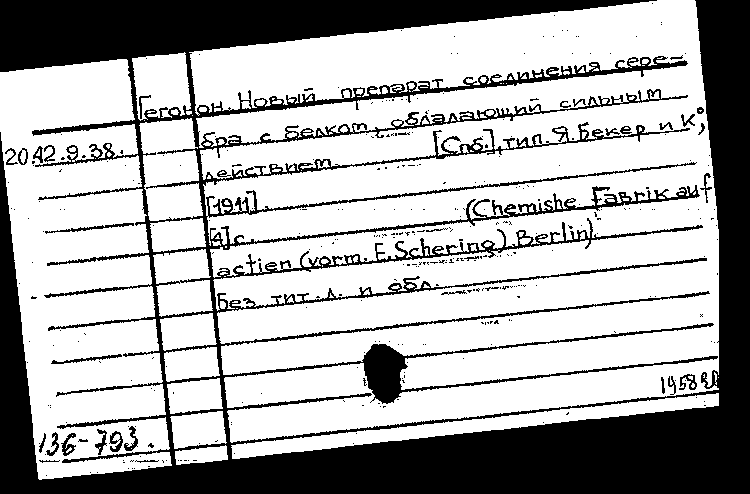 Гегонон. Новый препарат соединения сере-
бра с белком, обладающий сильным
20.42.9.38.
действием. [Спб.], тип. Я. Бекер и К°,
[1911].
[4] с. (Chemishe Fabrik auf
actien (vorm. E. Schering) Berlin).
Без тит. л. и обл.
1958
136-793.